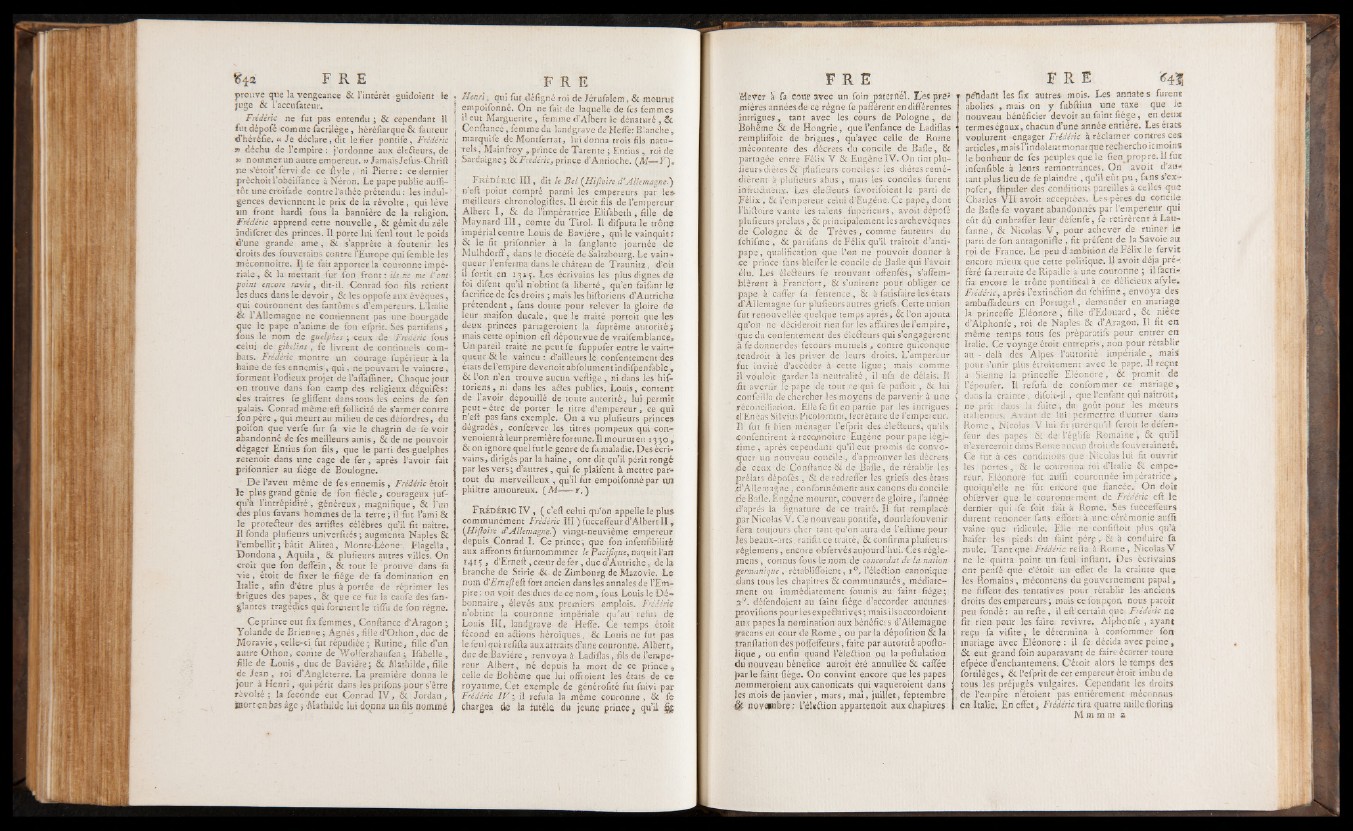 642 F R E
preuve que la vengeance & l'intérêt guidoient le
juge & l'accusateur.
Frédéric ne fut pas entendu ; & cependant il
fut déposé comme sacrilège, hérésiarque & fauteur
d'hérésie. « Je déclare, dit le fier pontife, Frédéric
» déchu de l'empire : j'ordonne aux électeurs, de
» nommer un autre empereur. » Jamais Jesus-Christ
ne s'étoit servi de ce style, ni Pierre : ce dernier
prêchoit l'obéissance à Néron. Le pape publie aussi-
tôt une croisade contre l'athée prétendu : les indul-
gences deviennent le prix de la révolte, qui lève
un front hardi sous la bannière de la religion.
Frédéric apprend cette nouvelle, & gémit du zèle
indiscret des princes. Il porte lui seul tout le poids
d'une grande ame, & s'apprête à soutenir les
droits des souverains contre l'Europe qui semble les
méconnoître. Il se fait apporter la couronne impé-
riale, & la mettant sur son front : ils ne me l'ont
point encore ravie, dit-il. Conrad son fils retient
les ducs dans le devoir, & les oppose aux évêques,
qui couronnent des fantômes d'empereurs. L'Italie
& l'Allemagne ne contiennent pas une bourgade
que le pape n'anime de son esprit. Ses partisans,
sous le nom de guelphes ; ceux de Frédéric sous
celui de gibelins, se livrent de continuels com-
bats. Frédéric montre un courage supérieur à la
haine de ses ennemis, qui, ne pouvant le vaincre,
forment l'odieux projet de l'assassiner. Chaque jour
on trouve dans son camp des religieux déguisés :
des traîtres se glissent dans tous les coins de son
palais. Conrad même est sollicité de s'armer contre
son père, qui meurt au milieu de ces désordres, du
poison que verse sur sa vie le chagrin de se voir
abandonné de ses meilleurs amis, & de ne pouvoir
dégager Entius son fils, que le parti des guelphes
retenoit dans une cage de fer, après l'avoir fait
prisonnier au siège de Boulogne.
De l'aveu même de ses ennemis, Frédéric étoit
le plus grand génie de son siècle, courageux jus-
qu'à l'intrépidité, généreux, magnifique, & l'un
des plus savans hommes de la terre ; il fut l'ami &
le protecteur des artistes célèbres qu'il fit naître.
Il fonda plusieurs universités ; augmenta Naples &
l'embellit ; bâtit Alitea, Monte-Léone, Flagella,
Dondona, Aquila, & plusieurs autres villes. On
croit que son dessein, & tout le prouve dans sa
vie, étoit de fixer le siège de sa domination en
Italie, afin d'être plus à portée de réprimer les
brigues des papes, & que ce fut la cause des san-
glantes tragédies qui forment le tissu de son règne.
Ce prince eut six femmes, Constance d'Aragon ;
Yolande de Brienne ; Agnès, fille d'Othon, duc de
Moravie, celle-ci fut répudiée ; Rutine, fille d'un
autre Othon, comte de Wolferzhausen ; Isabelle,
fille de Louis, duc de Bavière ; & Mathilde, fille
de Jean, roi d'Angleterre. La première donna le
jour à Henri, qui périt dans les prisons pour s'être
révolté ; la seconde eut Conrad IV, & Jordan,
mort en bas âge ; Mathilde lui donna un fils nommé
F R E
Henri, qui fut désigné roi de Jérusalem, & mourut
empoisonné. On ne sait de laquelle de ses femmes
il eut Marguerite, femme d'Albert le dénaturé, &
Constance, femme du landgrave de Hesse. Blanche,
marquise de Montferrat, lui donna trois fils natu-
rels, Mainfroy, prince de Tarente ; Entius, roi de
Sardaigne ; & Frédéric, prince d'Antioche. (M—Y).
FRÉDÉRIC III, dit le Bel (Histoire d'Allemagne.)
n'est point compté parmi les empereurs par les
meilleurs chronologistes. Il étoit fils de l'empereur
Albert I, & de l'impératrice Elisabeth, fille de
Maynard III, comte du Tirol. Il disputa le trône
impérial contre Louis de Bavière, qui le vainquit
& le fit prisonnier à la sanglante journée de
Mulhdorff, dans le diocèse de Saltzbourg. Le vain-
queur l'enferma dans le château de Traunitz, d'où
il sortit en 1325. Les écrivains les plus dignes de
foi disent qu'il n'obtint sa liberté, qu'en faisant le
sacrifice de ses droits ; mais les historiens d'Autriche
prétendent, sans doute pour relever la gloire de
leur maison ducale, que le traité portoit que les
deux princes partageroient la suprême autorité ;
mais cette opinion est dépourvue de vraisemblance.
Un pareil traité ne peut se supposer entre le vain-
queur & le vaincu : d'ailleurs le consentement des
états de l'empire devenoit absolument indispensable,
& l'on n'en trouve aucun vestige, ni dans les his-
toriens, ni dans les actes publics. Louis, content
de l'avoir dépouillé de toute autorité, lui permit
peut-être de porter le titre d'empereur, ce qui
n'est pas sans exemple. On a vu plusieurs princes
dégradés, conserver les titres pompeux qui con-
venoient à leur première fortune. Il mourut en 1330,
& on ignore quel fut le genre de sa maladie. Des écri-
vains, dirigés par la haine, ont dit qu'il périt rongé
par les vers ; d'autres, qui se plaisent à mettre par-
tout du merveilleux, qu'il fut empoisonné par un
philtre amoureux. (M—Y.)
FRÉDÉRIC IV, (c'est celui qu'on appelle le plus
communément Frédéric III) successeur d'Albert II,
(Histoire d'Allemagne.) vingt-neuvième empereur
depuis Conrad I. Ce prince, que son insensibilité
aux affronts fit surnommmer le Pacifique, naquit l'an
1415, d'Ernest, cœur de fer, duc d'Autriche, de la
branche de Stirie & de Zimbourg de Mazovie. Le
nom d'Ernest est fort ancien dans les annales de l'Em-
pire ; on voit des ducs de ce nom, sous Louis le Dé-
bonnaire, élevés aux premiers emplois. Frédéric
n'obtint la couronne impériale qu'au refus de
Louis III, landgrave de Hesse. Ce temps étoit
fécond en actions héroïques, & Louis ne fut pas
le seul qui résista aux attraits d'une couronne. Albert,
duc de Bavière, renvoya à Ladislas, fils de l'empe-
reur Albert, né depuis la mort de ce prince,
celle de Bohême que lui offroient les états de ce
royaume. Cet exemple de générosité fut suivi par
Frédéric IV ; il refusa la même couronne, & se
chargea de la tutèle du jeune prince, qu'il fit
F R E
élever à sa cour avec un soin paternel. Les pre-
mières années de ce règne se passèrent en différentes
intrigues, tant avec les cours de Pologne, de
Bohême & de Hongrie, que l'enfance de Ladislas
remplissoit de brigues, qu'avec celle de Rome
mécontente des décrets du concile de Basle, &
partagée entre Félix V & Eugène IV. On tint plu-
sieurs diètes & plusieurs conciles : les diètes remé-
dièrent à plusieurs abus, mais les conciles furent
infructueux. Les électeurs favorisoient le parti de
Félix, & l'empereur celui d'Eugène. Ce pape, dont
l'histoire vante les talens supérieurs, avoit déposé
plusieurs prélats, & principalement les archevêques
de Cologne & de Trèves, comme fauteurs du
schisme, & partisans de Félix qu'il traitoit d'anti-
pape, qualification que l'on ne pouvoit donner à
ce prince sans blesser le concile de Basle qui l'avoit
élu. Les électeurs se trouvant offensés, s'assem-
blèrent à Francfort, & s'unirent pour obliger ce
pape à casser sa sentence, & à satisfaire les états
d'Allemagne sur plusieurs autres griefs. Cette union
fut renouvellée quelque temps après, & l'on ajouta
qu'on ne décideroit rien sur les affaires de l'empire,
que du consentement des électeurs qui s'engagerent
à se donner des secours mutuels, contre quiconque
tendroit à les priver de leurs droits. L'empereur
fut invité d'accéder à cette ligue ; mais comme
il vouloit garder la neutralité, il usa de délais. Il
fit avertir le pape de tout ce qui se passoit, & lui
conseilla de chercher les moyens de parvenir à une
réconciliation. Elle se fit en partie par les intrigues
d'Enéas Silvius Picolomini, secrétaire de l'empereur.
Il sut si bien ménager l'esprit des électeurs, qu'ils
consentirent à reconnoître Eugène pour pape légi-
time, après cependant qu'il eut promis de convo-
quer un nouveau concile, d'approuver les décrets
de ceux de Constance & de Basle, de rétablir les
prélats déposés, & de redresser les griefs des états
d'Allemagne, conformément aux canons du concile
de Basle. Eugène mourut, couvert de gloire, l'année
d'après la signature de ce traité. Il fut remplacé
par Nicolas V. Ce nouveau pontife, dont le souvenir
sera toujours cher tant qu'on aura de l'estime pour
les beaux-arts, ratifia ce traité, & confirma plusieurs
réglemens, encore observés aujourd'hui. Ces régle-
mens, connus sous le nom de concordat de la nation
germanique, rétablissoient, 1°. l'élection canonique
dans tous les chapitres & communautés, médiate-
ment ou immédiatement soumis au saint siège ;
2°. défendoient au saint siège d'accorder aucunes
provisions pour les expectatives ; mais ils accordoient
aux papes la nomination aux bénéfices d'Allemagne
vacans en cour de Rome, ou par la déposition & la
translation des possesseurs, faite par autorité aposto-
lique, ou enfin quand l'élection ou la postulation
du nouveau bénéfice auroit été annullée & cassée
par le saint siège. On convint encore que les papes
nommeroient aux canonicats qui vaqueroient dans
les mois de janvier, mars, mai, juillet, septembre
& novembre : l'élection appartenoit aux chapitres
F R E 643
pendant les six autres mois. Les annates furent
abolies, mais on y substitua une taxe que le
nouveau bénéficier devoit au saint siège, en deux
termes égaux, chacun d'une année entière. Les états
voulurent engager Frédéric à réclamer contre ces
articles, mais l'indolent monarque recherchoit moins
le bonheur de ses peuples que le sien propre. Il fut
insensible à leurs remontrances. On avoit d'au-
tant plus lieu de se plaindre, qu'il eût pu, sans s'ex-
poser, stipuler des conditions pareilles à celles que
Charles VII avoit acceptées. Les pères du concile
de Basle se voyant abandonnés par l'empereur qui
eût dû embrasser leur défense, se retirèrent à Lau-
sanne, & Nicolas V, pour achever de ruiner le
parti de son antagoniste, fit présent de la Savoie au
roi de France. Le peu d'ambition de Félix le servit
encore mieux que cette politique. Il avoit déja pré-
féré sa retraite de Ripaille à une couronne ; il sacri-
fia encore le trône pontifical à ce délicieux asyle.
Frédéric, après l'extinction du schisme, envoya des
ambassadeurs en Portugal, demander en mariage
la princesse Eléonore, fille d'Edouard, & nièce
d'Alphonse, roi de Naples & d'Aragon. Il fit en
même temps tous ses préparatifs pour entrer en
Italie. Ce voyage étoit entrepris, non pour rétablir
au-delà des Alpes l'autorité impériale, mais
pour s'unir plus étroitement avec le pape. Il reçut
à Sienne la princesse Eléonore, & promit de
l'épouser. Il refusa de consommer ce mariage,
dans la crainte, disoit-il, que l'enfant qui naîtroit,
ne prît dans la suite, du goût pour les mœurs
italiennes. Avant de lui permettre d'entrer dans
Rome, Nicolas V lui fit jurer qu'il seroit le défen-
seur des papes & de l'église Romaine, & qu'il
n'exerceroit dans Rome aucun droit de souveraineté.
Ce fut à ces conditions que Nicolas lui fit ouvrir
les portes, & le couronna roi d'Italie & empe-
reur. Eléonore fut aussi couronnée impératrice,
quoiqu'elle ne fût encore que fiancée. On doit
observer que le couronnement de Frédéric est le
dernier qui se soit fait à Rome. Ses successeurs
durent renoncer sans effort à une cérémonie aussi
vaine que ridicule. Elle ne consistoit plus qu'à
baiser les pieds du saint père, & à conduire sa
mule. Tant que Frédéric resta à Rome, Nicolas V
ne le quitta point un seul instant. Des écrivains
ont pensé que c'étoit un effet de la crainte que
les Romains, mécontens du gouvernement papal,
ne fissent des tentatives pour rétablir les anciens
droits des empereurs ; mais ce soupçon nous paroît
peu fondé : au reste, il est certain que Frédéric ne
fit rien pour les faire revivre. Alphonse, ayant
reçu sa visite, le détermina à consommer son
mariage avec Eléonore : il se décida avec peine,
& eut grand soin auparavant de faire écarter toute
espèce d'enchantemens. C'étoit alors le temps des
sortilèges, & l'esprit de cet empereur étoit imbu de
tous les préjugés vulgaires. Cependant les droits
de l'empire n'étoient pas entièrement méconnus
en Italie. En effet, Frédéric tira quatre mille florins
M m m m 2